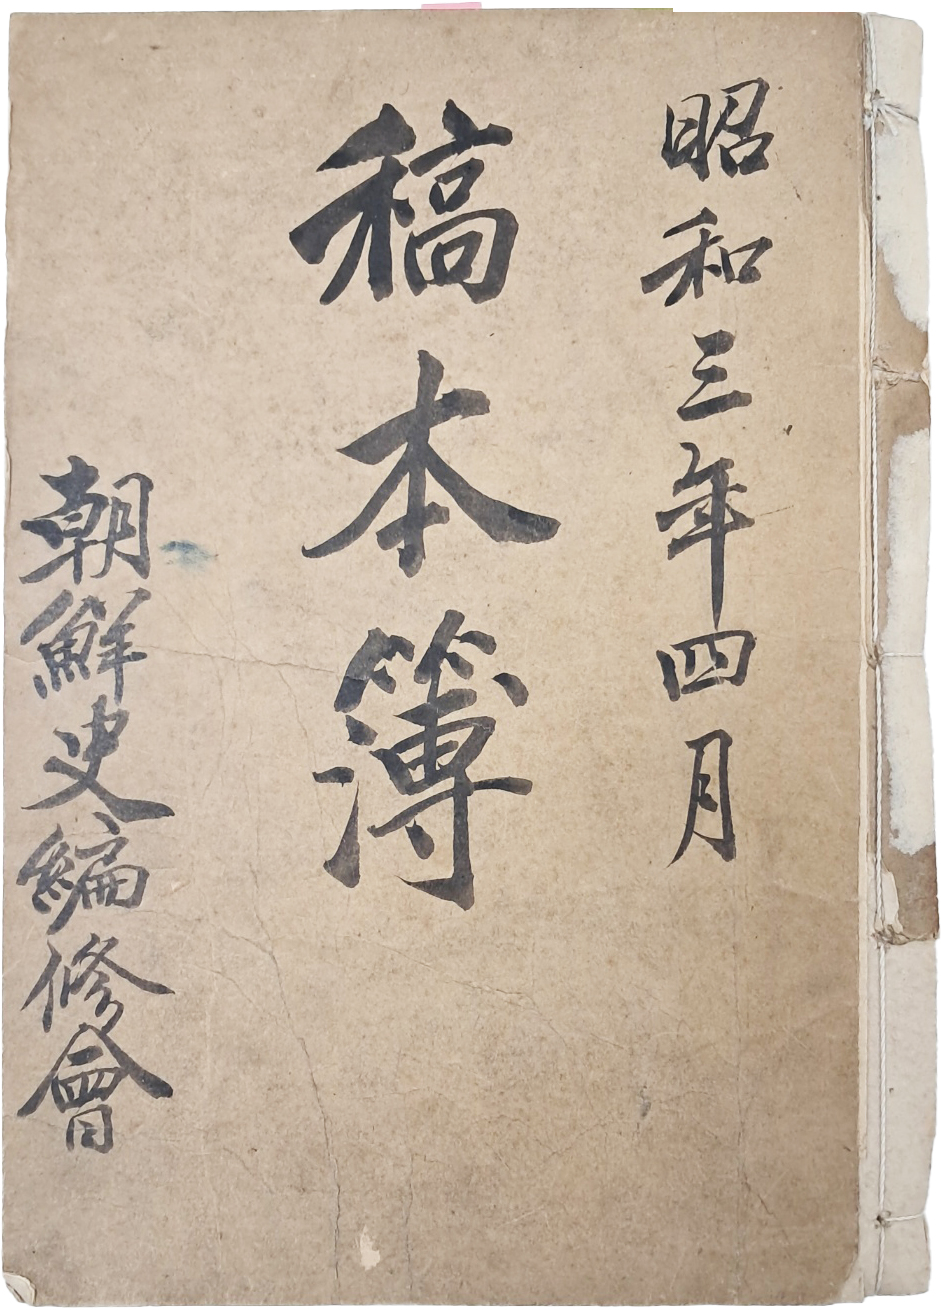 昭和三年四月
稿本簿
朝鮮史編修會